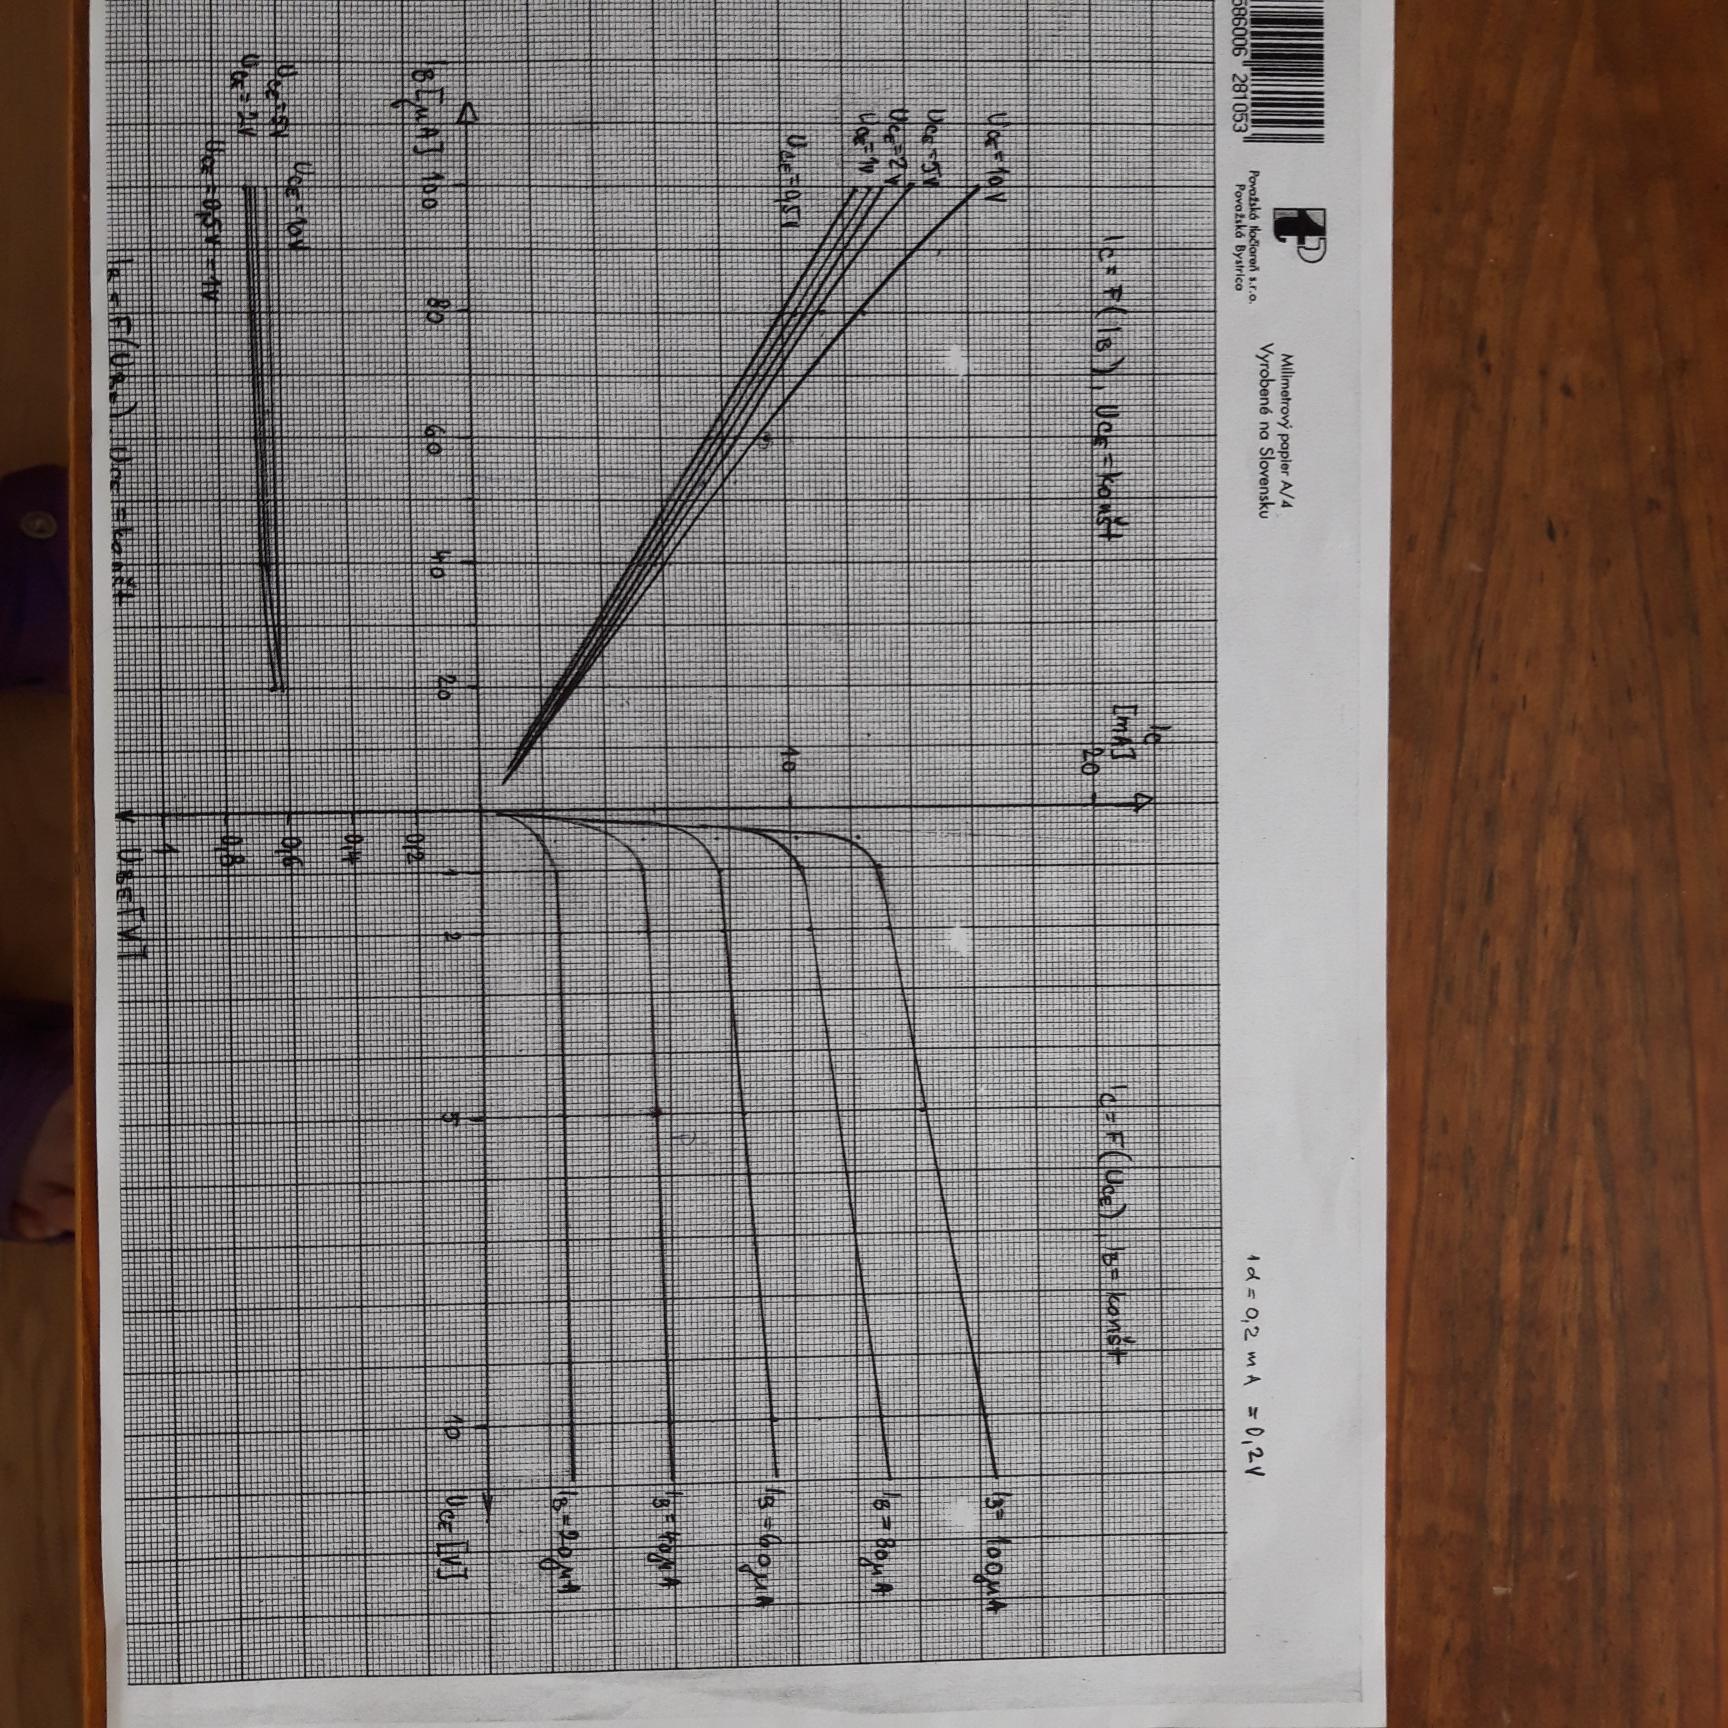 586006 281053
Považská tlačiareň s.r.o.
Považská Bystrica
Milimetrový papier A/4
Vyrobené na Slovensku
1d = 0,2 mA = 0,2V
IC = F(IB), UCE = konšt
IC
[mA]
20
IC = F(UCE), IB = konšt
UCE = 10V
UCE = 5V
UCE = 2V
UCE = 1V
UCE = 0,5V
10
IB = 100μA
IB = 80μA
IB = 60μA
P
IB = 40μA
IB = 20μA
IB [μA] 100 80 60 40 20 1 2 5 10 UCE [V]
0,2
0,4
0,6
0,8
1
UCE = 10V
UCE = 5V
UCE = 2V
UCE = 0,5V - 1V
IB = F(UBE), UCE = konšt
UBE [V]